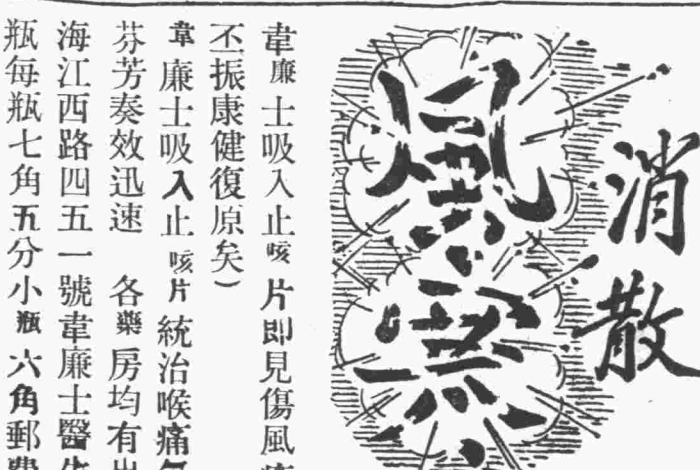 消散
風寒
韋廉士吸入止咳片即見傷風
丕振康健復原矣）
韋廉士吸入止咳片統治喉痛
芬芳奏效迅速　各藥房均有出
海江西路四五一號韋廉士醫生
瓶每瓶七角五分小瓶六角郵費